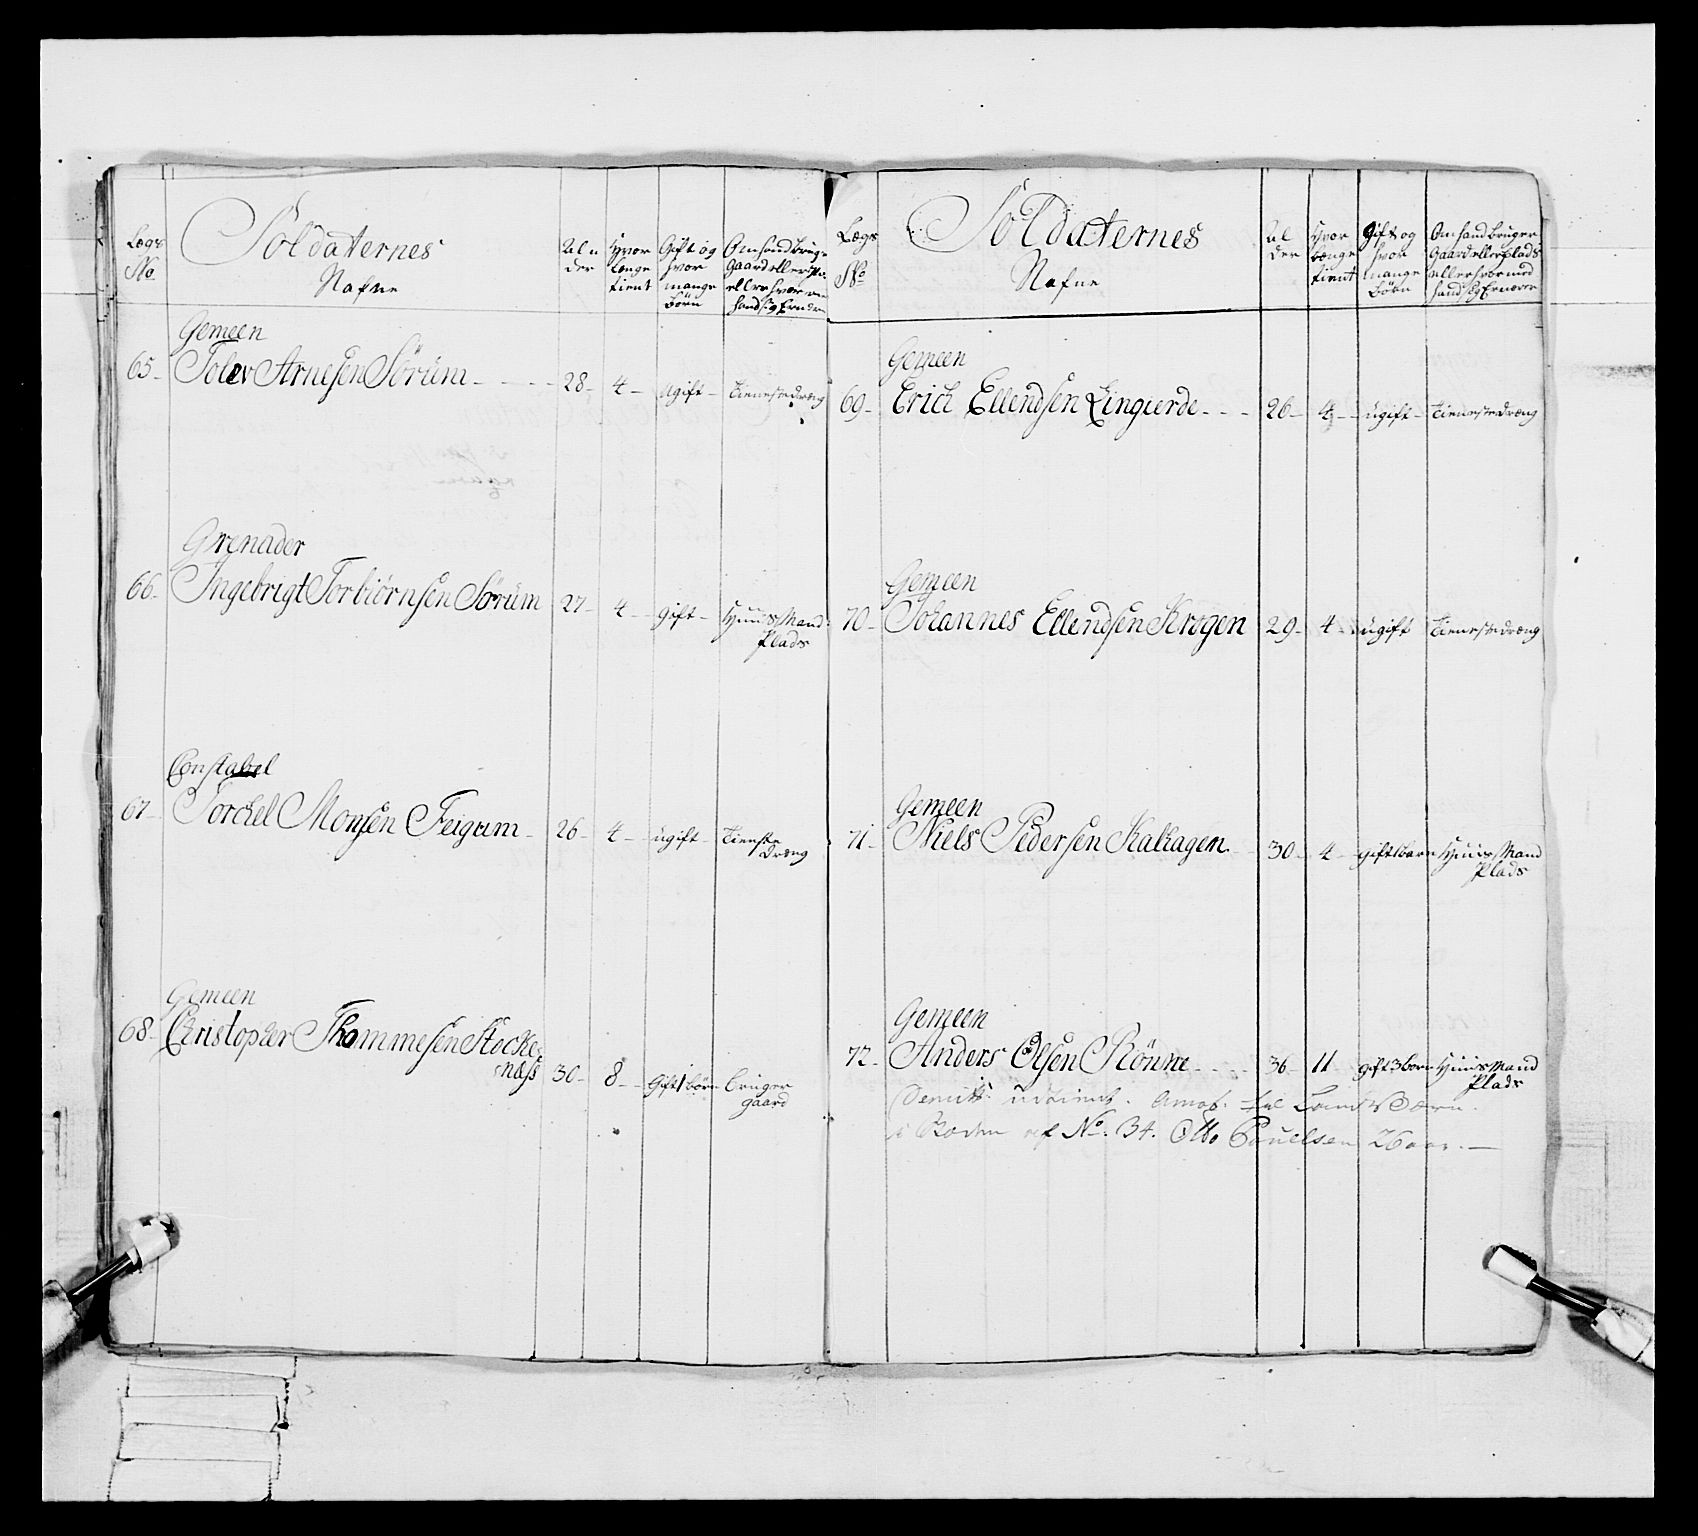 Lægs No
Soldaternes Nafne
Alder
Hvor Længe tient
Gift og hvor mange Børn
Om hand bruger Gaard eller
eller hvor
hand sig
Gemeen
65 Tolev Arnesen Sørum 28 4 ugift Tienestedreng
Grenader
66 Ingebrigt Torbiørnsen Sørum 27 4 gift Huus Mand
Plads
Constabel
67 Torckel Monsen Feigum 26 4 ugift Tieneste
dreng
Gemeen
68 Christopher Thommesen Stocke
næss 30 8 Gift 1 børn bruger
gaard
Lægs No
Soldaternes Nafne
Alder
Hvor Længe tient
Gift og hvor mange Børn
Om hand bruger
Gaard eller Plads
eller hvor med
hand sig Ernærer
Gemeen
69 Erich Ellendsen Lingierde 26 4 ugift Tienestedreng
Gemeen
70 Johannes Ellendsen Krogen 29 4 ugift Tienestedreng
Gemeen
71 Niels Pedersen Kalhagen 30 4 gift 1 barn Huus Mand
Plads
Gemeen
72 Anders Olsen Rönne 36 11 gift 3 børn Huus Mand
Plads
udtient. til Land Værn.
i Roden af No. 34. Otto Pouelsen 26 aar.